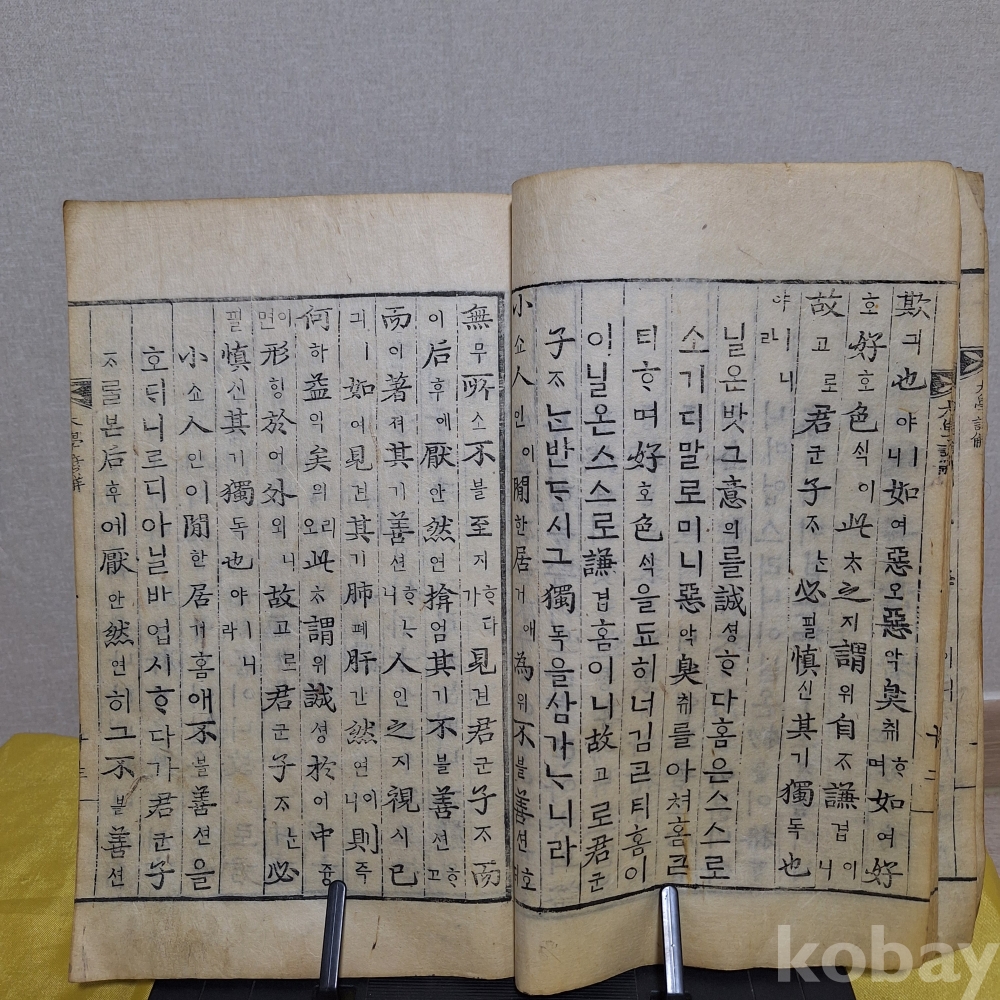 欺긔也야ㅣ니如여惡오惡악臭취ᄒᆞ며如여好
호好호色식이此ᄎᆞ之지謂위自ᄌᆞ謙겸이니
故고로君군子ᄌᆞᄂᆞᆫ必필愼신其기獨독也
야ㅣ니라
닐온밧그意의를誠셩ᄒᆞ다홈은스스로
소기디말로미니惡악臭취를아쳐홈ᄀᆞ
티ᄒᆞ며好호色식을됴히너김ᄀᆞ티홈이
이닐온스스로謙겸홈이니故고로君군
子ᄌᆞᄂᆞᆫ반ᄃᆞ시그獨독을삼가ᄂᆞ니라
小쇼人인이閒한居거애為위不블善션호
無무所소不블至지ᄒᆞ다가見견君군子ᄌᆞ而
이后후에厭안然연揜엄其기不블善션ᄒᆞ고
而이著져其기善션ᄒᆞᄂᆞ니人인之지視시己
긔ㅣ如여見견其기肺폐肝간然연이니則즉
何하益익矣의리오此ᄎᆞ謂위誠셩於어中듕
이면形형於어外외니故고로君군子ᄌᆞᄂᆞᆫ必
필愼신其기獨독也야ㅣ니라
小쇼人인이閒한居거홈애不블善션을
호ᄃᆡ니르디아닐바업시ᄒᆞ다가君군子
ᄌᆞ를본后후에厭안然연히그不블善션
kobay